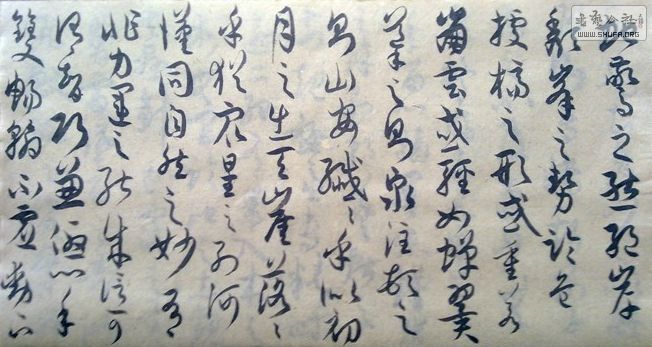 虵驚之態絕岸
頹峯之勢臨危
據槁之形或重若
崩雲或輕如蟬翼
導之則泉注頓之
則山安纖〻乎似初
月之出天崖落〻
乎猶衆星之列河
漢同自然之妙有
非力運之能成信可
謂智巧兼優心手
雙暢翰不虛動下
書藝公社
WWW.SHUFA.ORG